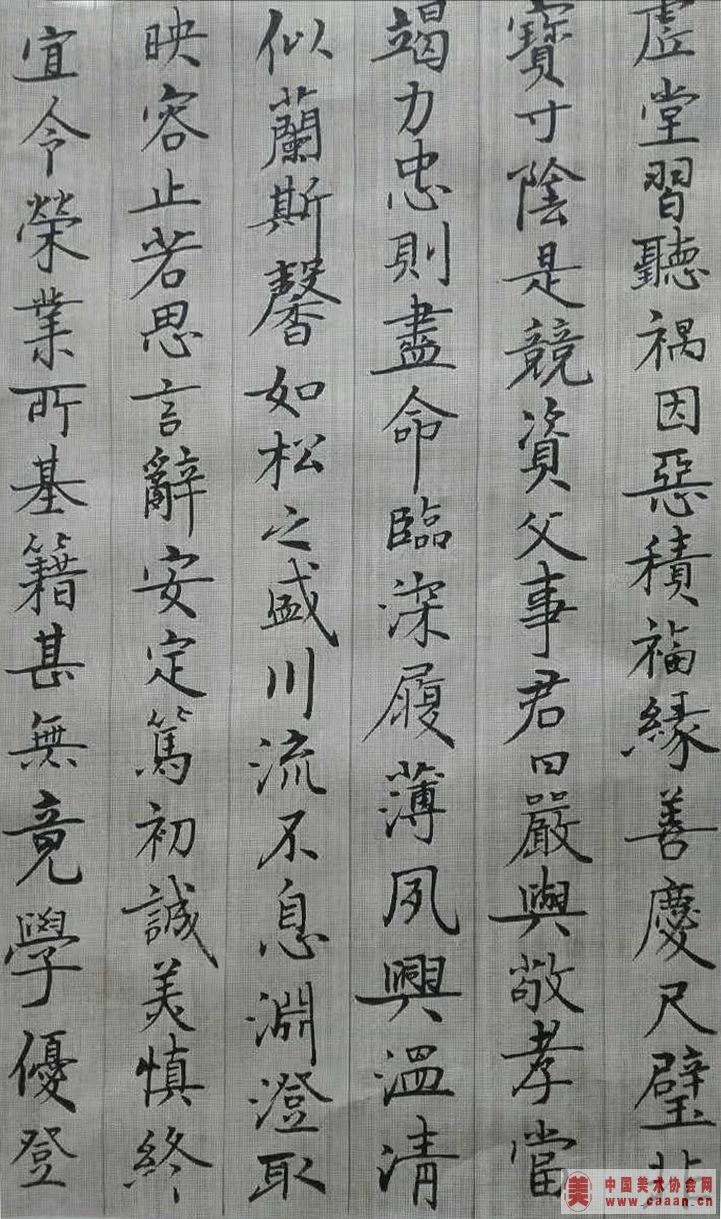 虛堂習聽禍因惡積福緣善慶尺璧非
寶寸陰是競資父事君曰嚴與敬孝當
竭力忠則盡命臨深履薄夙興溫清
似蘭斯馨如松之盛川流不息淵澄取
映容止若思言辭安定篤初誠美慎終
宜令榮業所基籍甚無竟學優登
中国美术协会网
www.caaan.cn
美